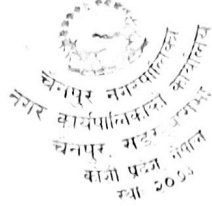 चैनपुर नगरपालिका
नगर कार्यपालिकाको कार्यालय
चैनपुर,
कोशी प्रदेश नेपाल
स्था